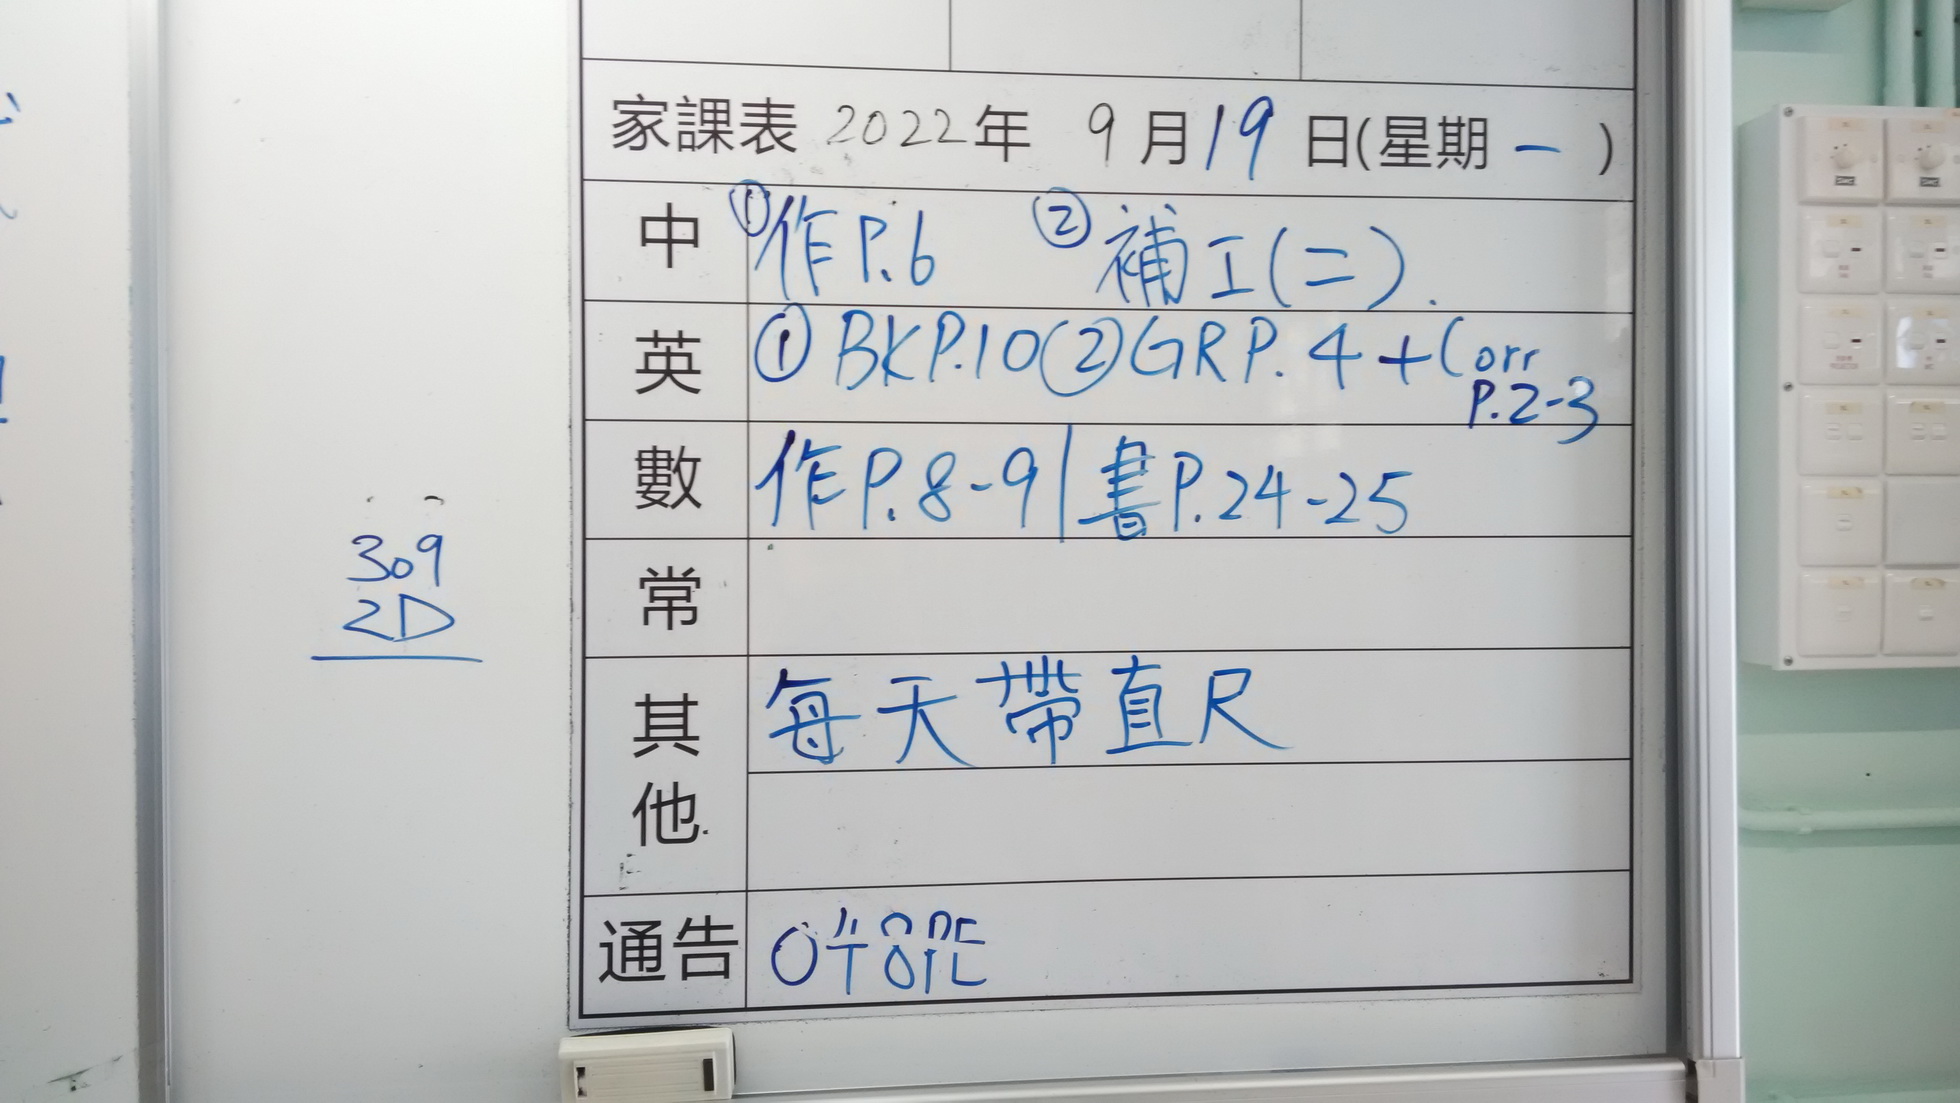 309
2D
家課表 2022年 9月19日(星期一)
中 ①作P.6 ②補工(二).
英 ①BKP.10②GRP.4+Corr
P.2-3
數 作P.8-9|書P.24-25
常
其他 每天帶直尺
通告